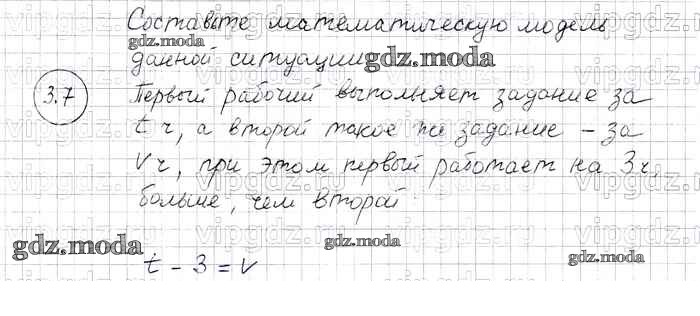 Составьте математическую модель
gdz.moda
данной ситуации gdz.moda
3.7 Первый рабочий выполняет задание за
t ч, а второй такое же задание - за
v ч, при этом первый работает на 3 ч.
больше, чем второй
gdz.moda
gdz.moda
gdz.moda
t - 3 = v
vipgdz.ru